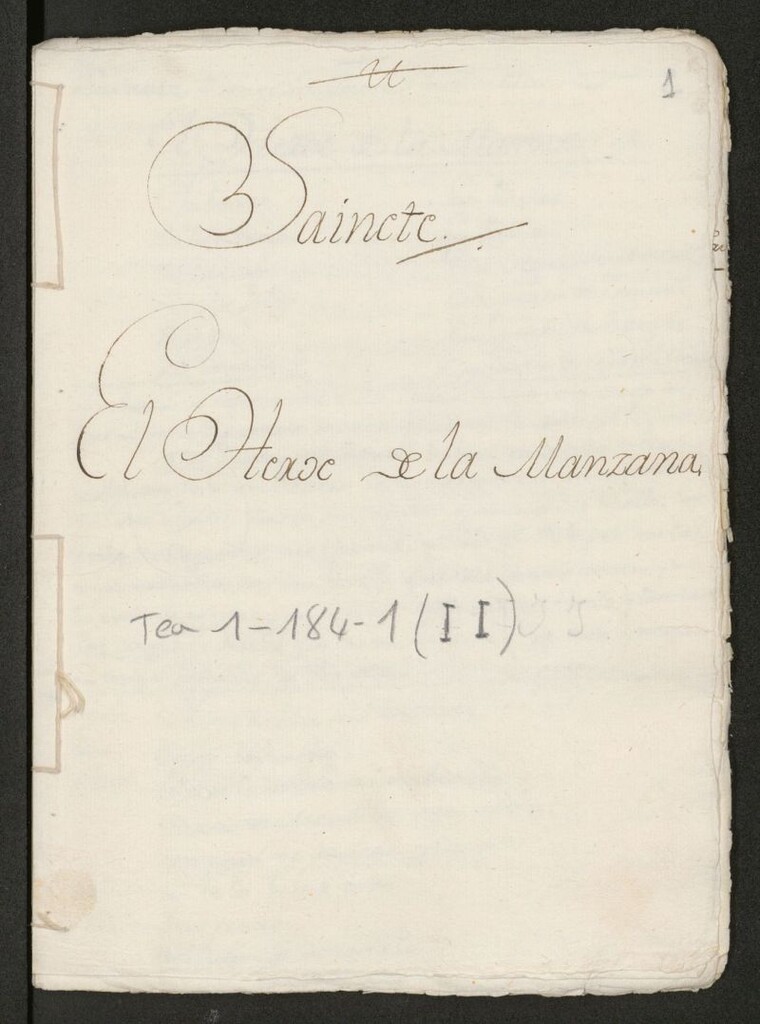 1
Sainete.
El Heroe de la Manzana.
Tea 1-184-1 (II)